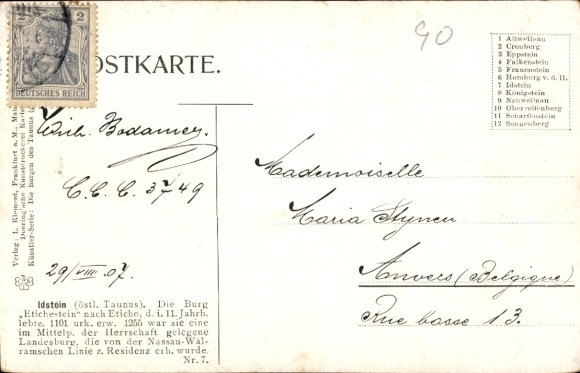 2 2
DEUTSCHES REICH
POSTKARTE.
90
1 Altweilnau
2 Cronberg
3 Eppstein
4 Falkenstein
5 Frauenstein
6 Homburg v. d. H.
7 Idstein
8 Königstein
9 Neuweilnau
10 Oberreifenberg
11 Scharfenstein
12 Sonnenberg
Verlag: L. Klement, Frankfurt a. M.,
Künstler-Serie: Die Burgen des Taunus
Bodamer.
C. C. C. 3749
29/VIII. 07.
Mademoiselle
Maria Stynen
Anvers (Belgique)
Rue basse 13.
Idstein (östl. Taunus). Die Burg
„Etichestein" nach Eticho, d. i. 11. Jahrh.
lebte. 1101 urk. erw. 1255 war sie eine
im Mittelp. der Herrschaft gelegene
Landesburg, die von der Nassau-Wal-
ramschen Linie z. Residenz erh. wurde.
Nr. 7.